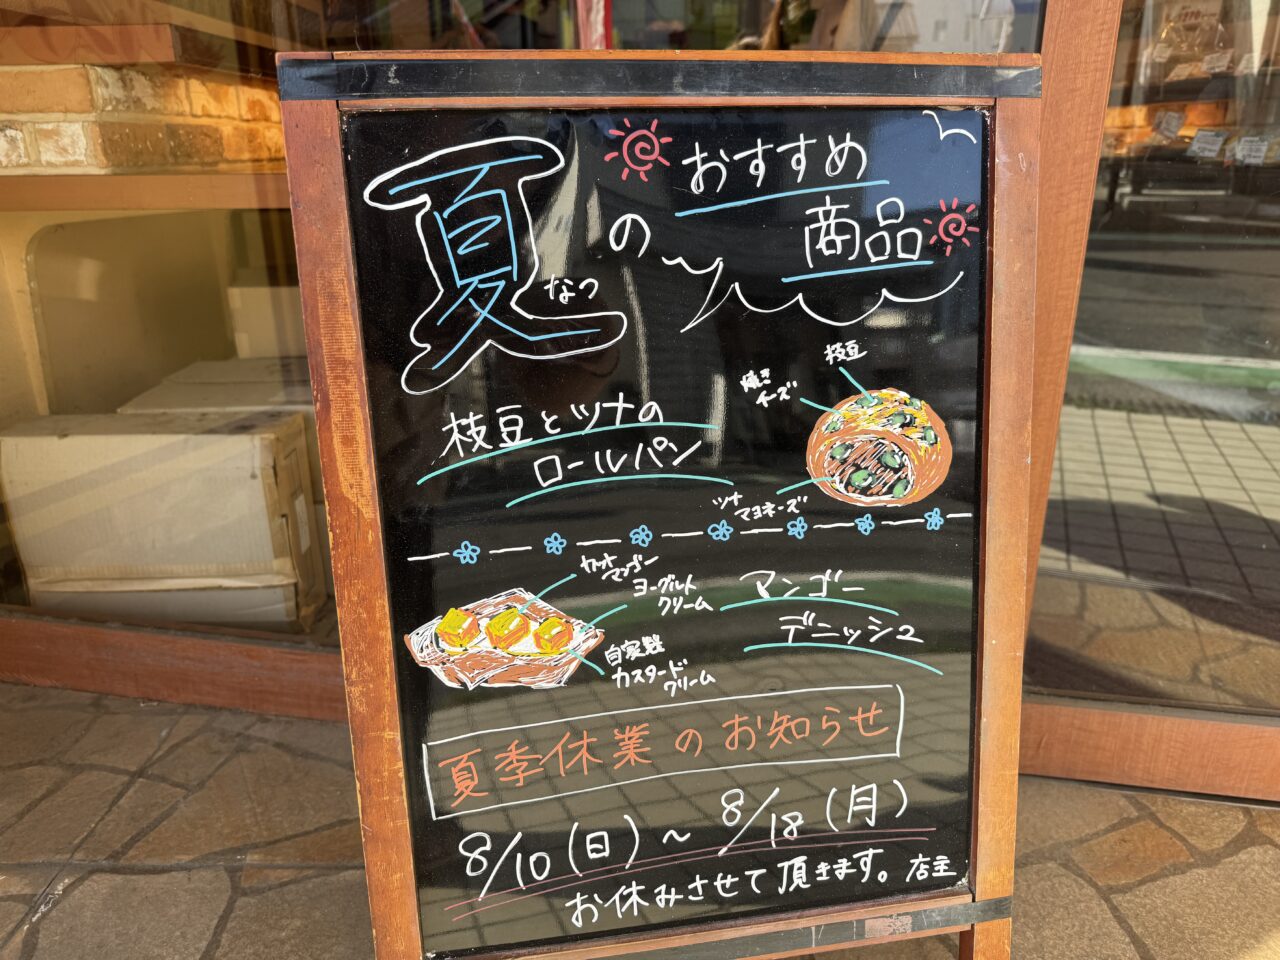 夏
なつ
の
おすすめ
商品
枝豆とツナの
ロールパン
枝豆
焼き
チーズ
ツナ
マヨネーズ
カット
マンゴー
ヨーグルト
クリーム
自家製
カスタード
クリーム
マンゴー
デニッシュ
夏季休業のお知らせ
8/10(日)~8/18(月)
お休みさせて頂きます。店主